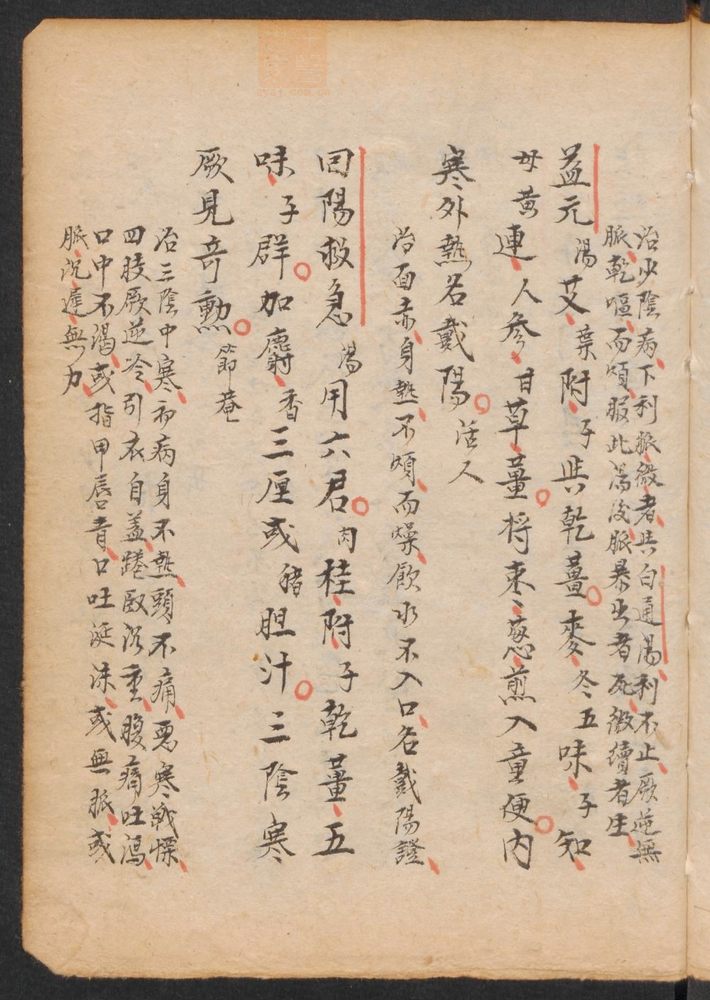 治少陰病下利脈微者與白通湯利不止厥逆無
脈乾嘔而煩服此湯後脈暴出者死微續者生
益元湯艾葉附子與乾薑麥冬五味子知
母黃連人參甘草薑將棗葱煎入童便內
寒外熱名戴陽活人
治面赤身熱不煩而燥飲水不入口名戴陽證
回陽救急湯用六君肉桂附子乾薑五
味子群加麝香三厘或猪胆汁三陰寒
厥見奇勳節菴
治三陰中寒初病身不熱頭不痛惡寒戰慄
四肢厥逆冷引衣自蓋踡臥沉重腹痛吐瀉
口中不渴或指甲唇青口吐涎沫或無脈或
脈沉遲無力